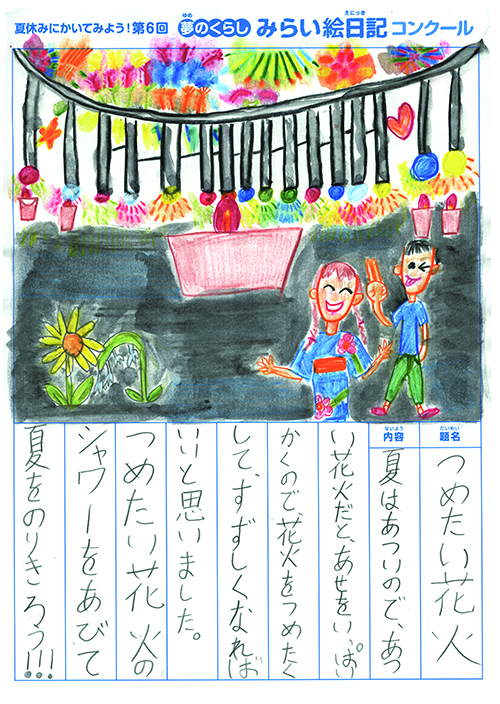 夏休みにかいてみよう!第6回 夢のくらし みらい絵日記 コンクール
ゆめ
えにっき
だいめい
題名
つめたい花火
ないよう
内容
夏はあついので、あつ
い花火だと、あせをいっぱい
かくので、花火をつめたく
して、すずしくなれば
いいと思いました。
つめたい花火の
シャワーをあびて
夏をのりきろう!!!